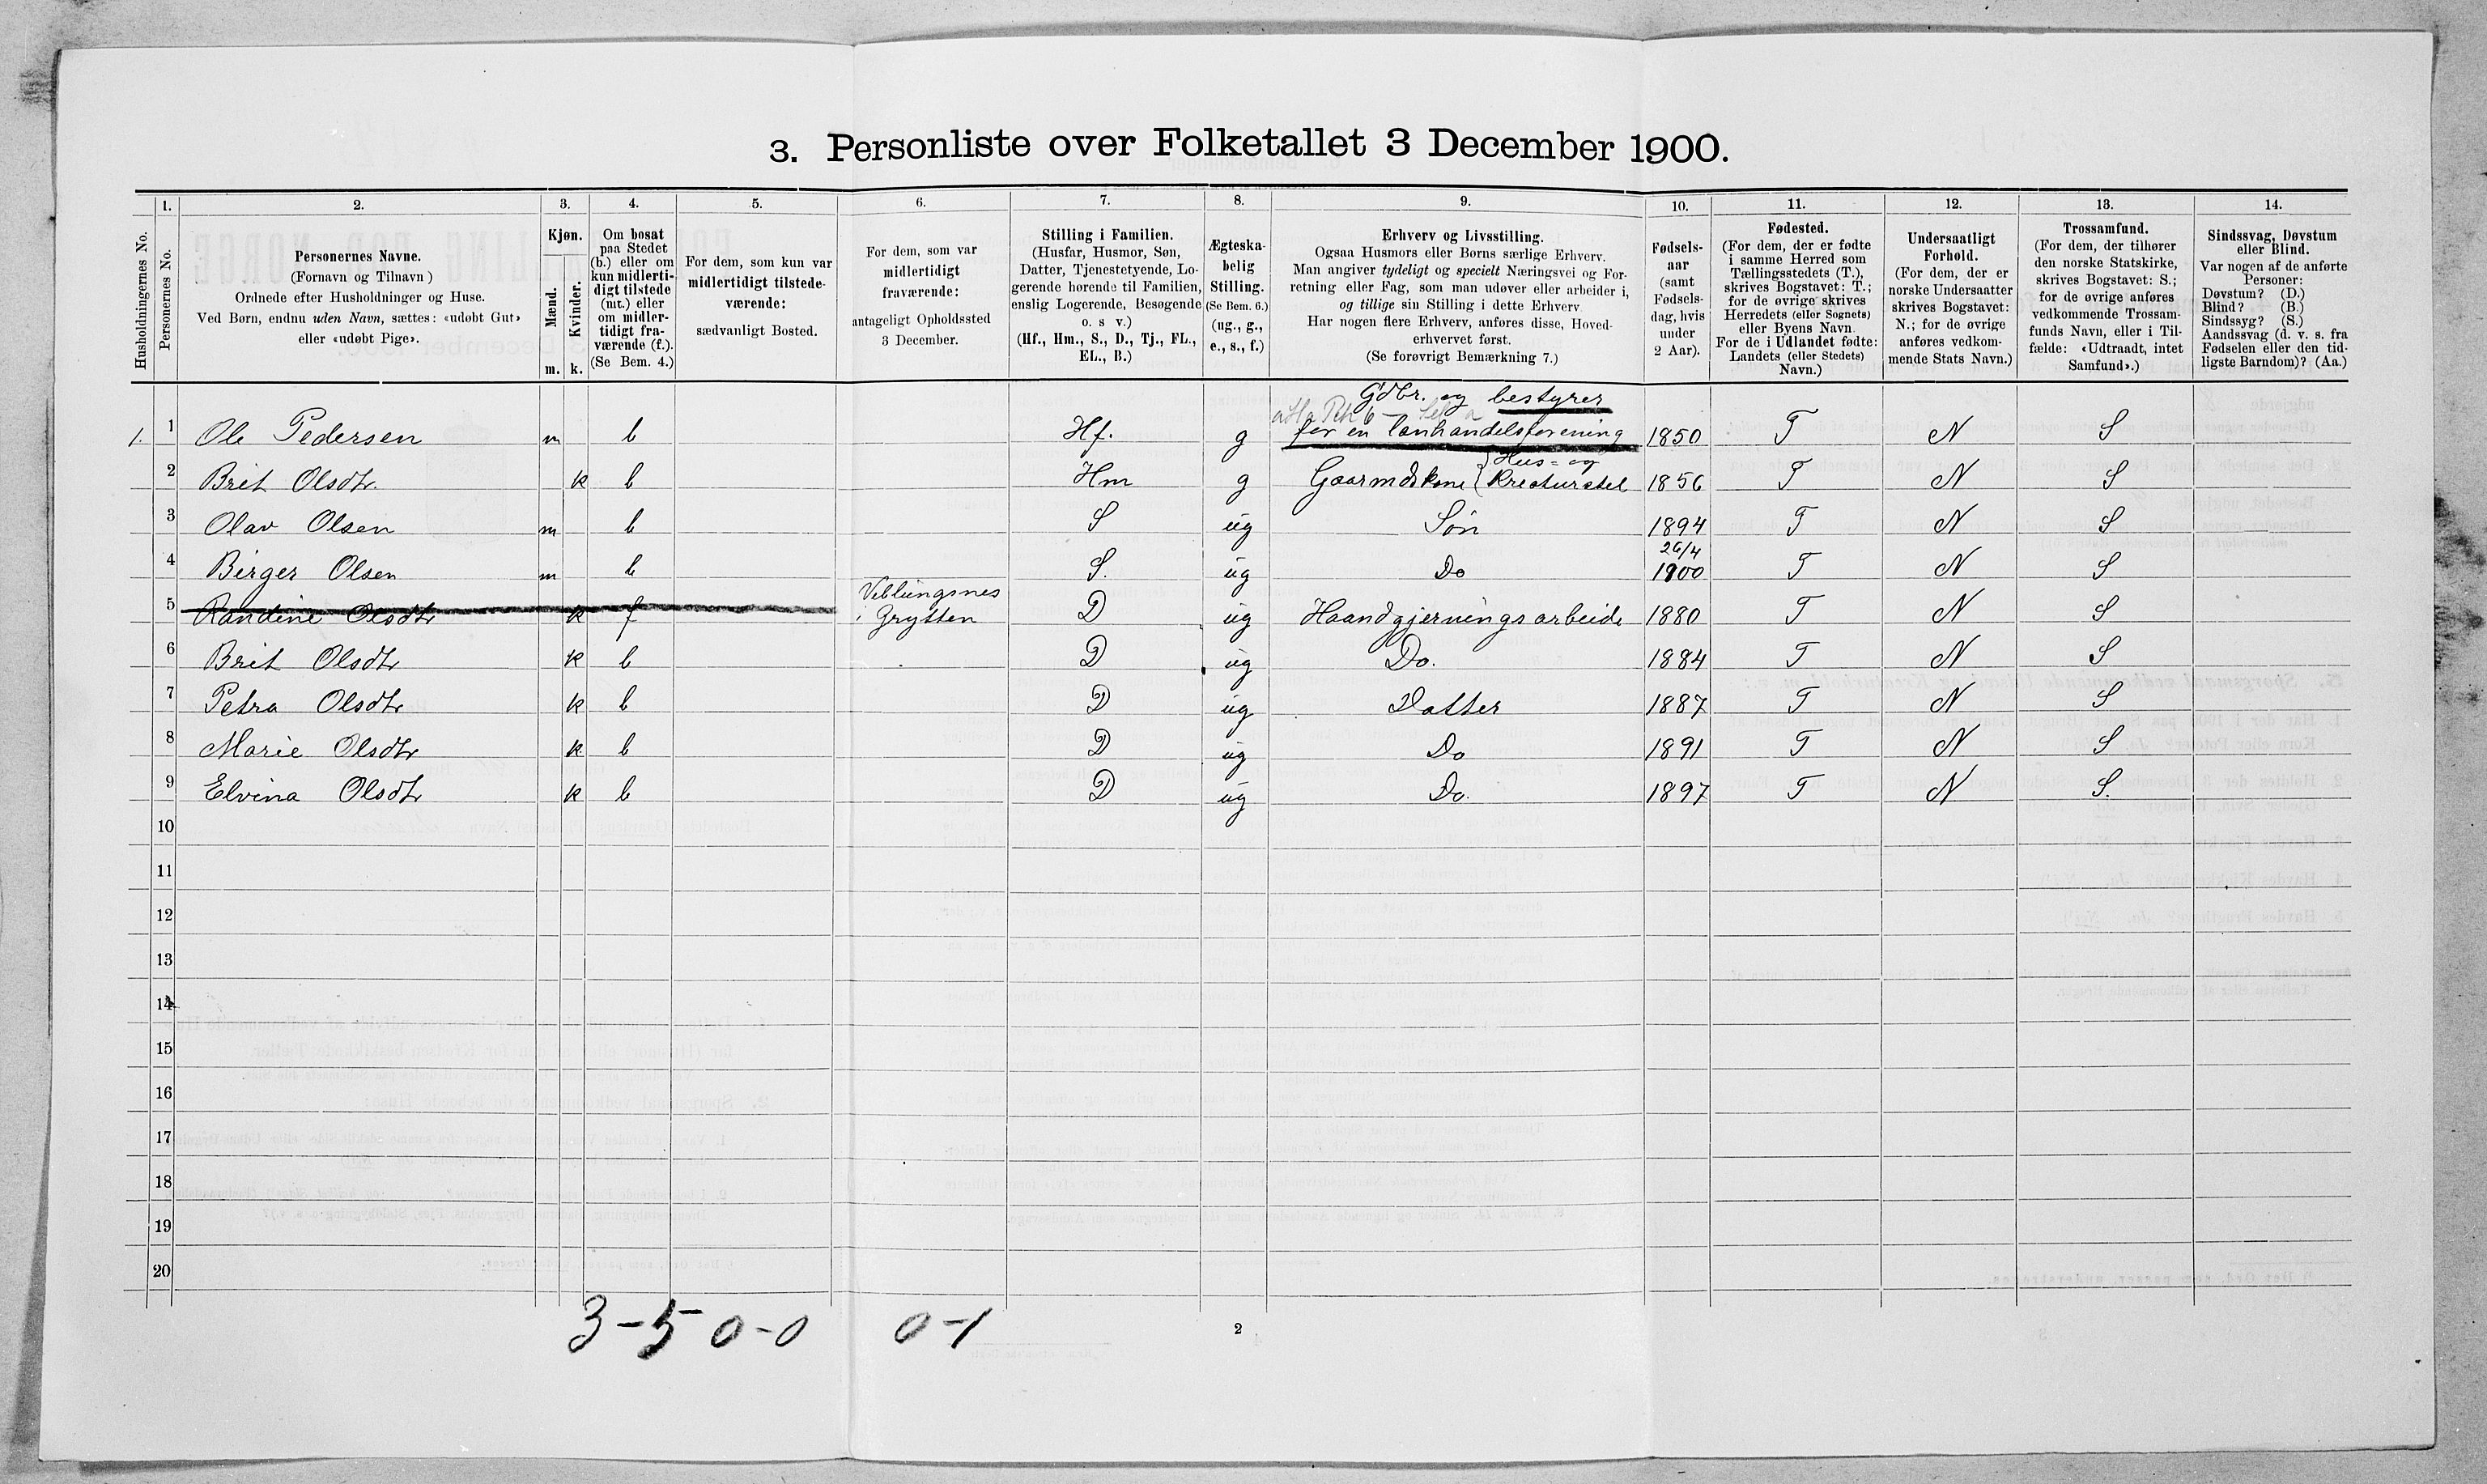 3. Personliste over Folketallet 3 December 1900.
1. 2. 3. 4. 5. 6. 7. 8. 9. 10. 11. 12. 13. 14.
Husholdningernes No.
Personernes No.
Personernes Navne.
(Fornavn og Tilnavn)
Ordnede efter Husholdninger og Huse.
Ved Børn, endnu uden Navn, sættes: «udøbt Gut»
eller «udøbt Pige».
Kjøn.
Mænd.
Kvinder.
m. k.
Om bosat
paa Stedet
(b.) eller om
kun midlerti-
digt tilstede
(mt.) eller
om midler-
tidigt fra-
værende (f.).
(Se Bem. 4.)
For dem, som kun var
midlertidigt tilstede-
værende:
sædvanligt Bosted.
For dem, som var
midlertidigt
fraværende:
antageligt Opholdssted
3 December.
Stilling i Familien.
(Husfar, Husmor, Søn,
Datter, Tjenestetyende, Lo-
gerende hørende til Familien,
enslig Logerende, Besøgende
o. s v.)
(Hf., Hm., S., D., Tj., FL.,
EL., B.)
Ægteska-
belig
Stilling.
(Se Bem. 6.)
(ug., g.,
e., s., f.)
Erhverv og Livsstilling.
Ogsaa Husmors eller Børns særlige Erhverv.
Man angiver tydeligt og specielt Næringsvei og For-
retning eller Fag, som man udøver eller arbeider i,
og tillige sin Stilling i dette Erhverv
Har nogen flere Erhverv, anføres disse, Hoved-
erhvervet først.
(Se forøvrigt Bemærkning 7.)
Fødsels-
aar
(samt
Fødsels-
dag, hvis
under
2 Aar).
Fødested.
(For dem, der er fødte
i samme Herred som
Tællingsstedets (T.),
skrives Bogstavet: T.;
for de øvrige skrives
Herredets (eller Sognets)
eller Byens Navn.
For de i Udlandet fødte:
Landets (eller Stedets)
Navn.)
Undersaatligt
Forhold.
(For dem, der er
norske Undersaatter
skrives Bogstavet:
N.; for de øvrige
anføres vedkom-
mende Stats Navn.)
Trossamfund.
(For dem, der tilhører
den norske Statskirke,
skrives Bogstavet: S.;
for de øvrige anføres
vedkommende Trossam-
funds Navn, eller i Til-
fælde: «Udtraadt, intet
Samfund».)
Sindssvag, Døvstum
eller Blind.
Var nogen af de anførte
Personer:
Døvstum? (D.)
Blind? (B.)
Sindssyg? (S.)
Aandssvag (d. v. s. fra
Fødselen eller den tid-
ligste Barndom)? (Aa.)
Gdbr. og bestyrer
1. 1 Ole Pedersen m b Hf. g for en lanhandelsforening 1850 T N S
Hus= og
2 Brit Olsdtr. k b Hm g Gaarmdskone Kreaturstel 1856 T N S
3 Olav Olsen m b S ug Søn 1894 T N S
26/4
4 Birger Olsen m b S. ug Do 1900 T N S
Veblungsnes
5 Randine Olsdtr k f i Grytten D ug Haandgjerningsarbeide 1880 T N S
6 Brit Olsdtr k b D ug Do. 1884 T N S
7 Petra Olsdtr k b D ug Datter 1887 T N S
8 Marie Olsdtr k b D ug Do 1891 T N S
9 Elvina Olsdtr k b D ug Do. 1897 T N S.
10
11
12
13
14
15
16
17
18
19
20
3-5 0-0 0-1
2